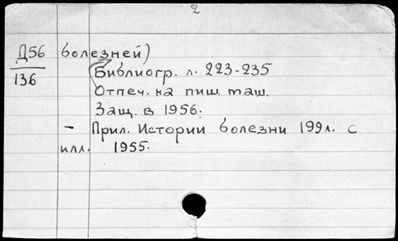 2
Д56 болезней)
136 (Библиогр. л. 223-235
Отпеч. на пиш. маш.
Защ. в 1956.
- Прил. Истории болезни 199л. с
илл. 1955.